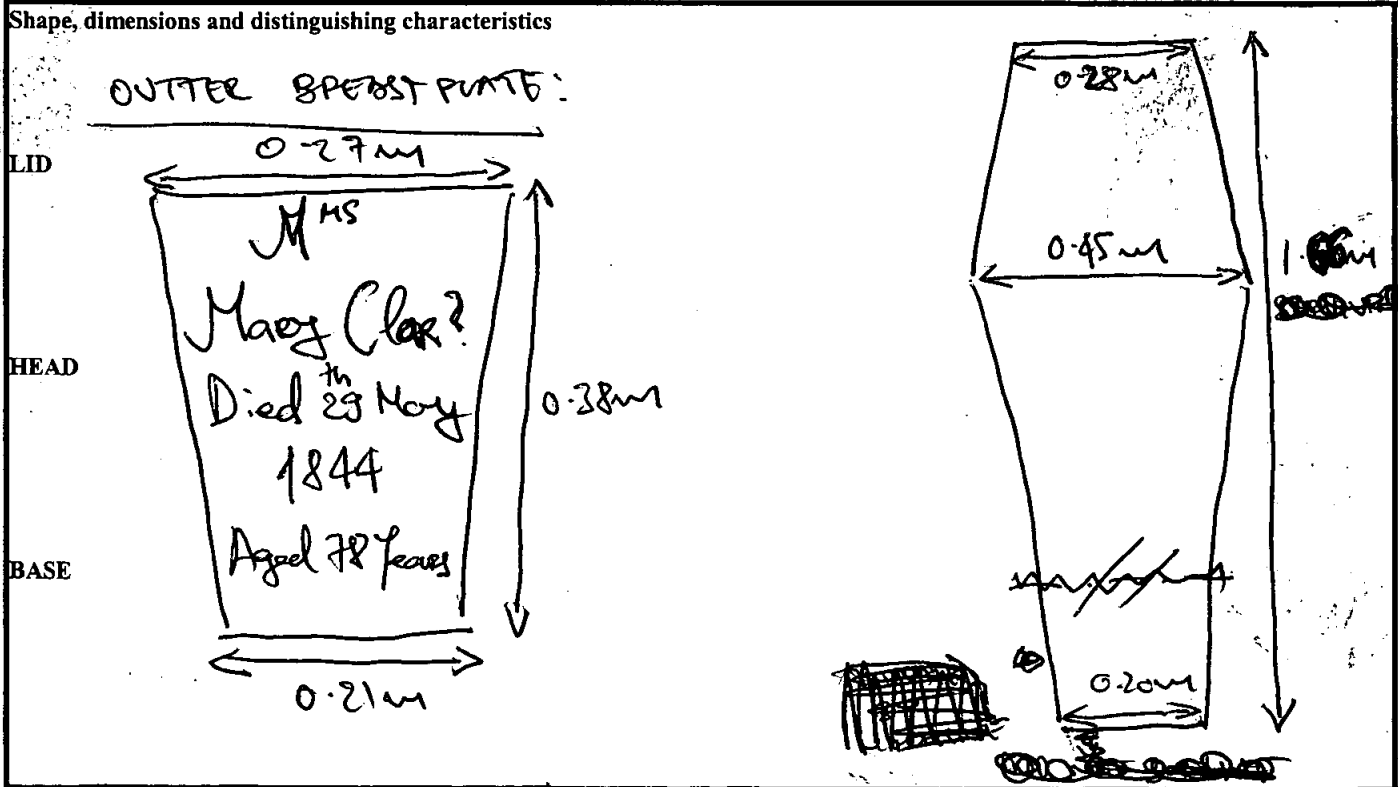 Shape, dimensions and distinguishing characteristics
OUTTER BREAST PLATE:
LID
0.27m
Mrs
Mary Clar?
HEAD
Died 29th May
1844
0.38m
Aged 78 Years
BASE
0.21m
0.28m
0.45m
0.20m